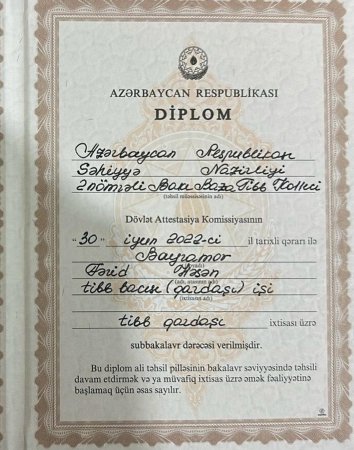 AZƏRBAYCAN RESPUBLİKASI
DİPLOM
Azərbaycan Respublikası
Səhiyyə Nazirliyi
2 nömrəli Bakı Baza Tibb Kolleci
(təhsil müəssisəsinin adı)
Dövlət Attestasiya Komissiyasının
"30" iyun 2022-ci il tarixli qərarı ilə
Bayramov
(soyadı)
Fərid Həsən
(adı, atasının adı)
tibb bacısı (qardaşı) işi
(ixtisasın adı)
tibb qardaşı ixtisası üzrə
subbakalavr dərəcəsi verilmişdir.
Bu diplom ali təhsil pilləsinin bakalavr səviyyəsində təhsili
davam etdirmək və ya müvafiq ixtisas üzrə əmək fəaliyyətinə
başlamaq üçün əsas sayılır.